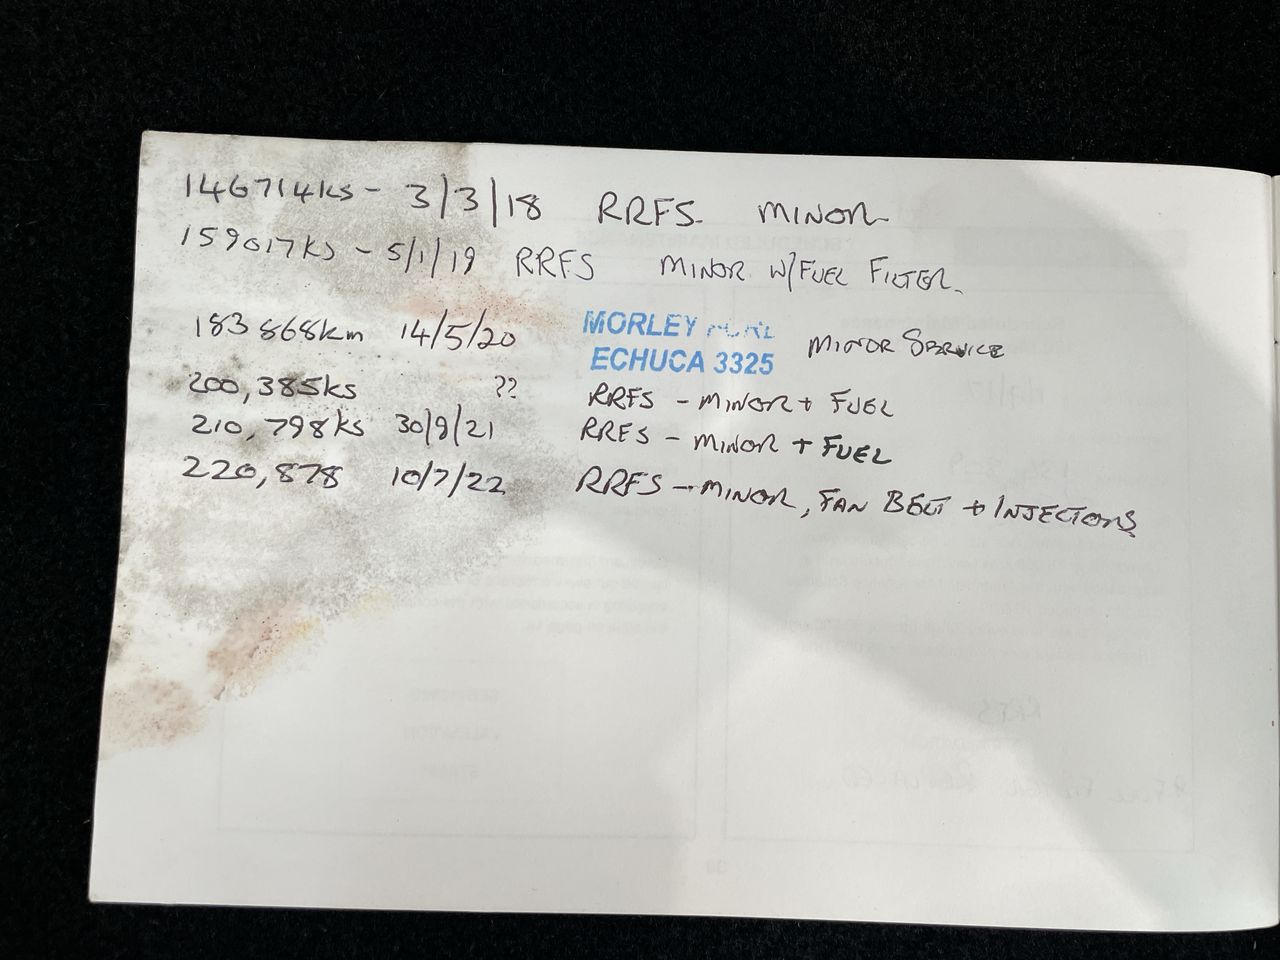 146714ks - 3/3/18 RRFS MINOR
159017KS - 5/1/19 RRFS MINOR W/FUEL FILTER
183 868km 14/5/20 MORLEY MINOR SERVICE
ECHUCA 3325
200,385ks ?? RRFS - MINOR + FUEL
210,798ks 30/9/21 RRFS - MINOR + FUEL
220,878 10/7/22 RRFS - MINOR, FAN BELT + INJECTORS